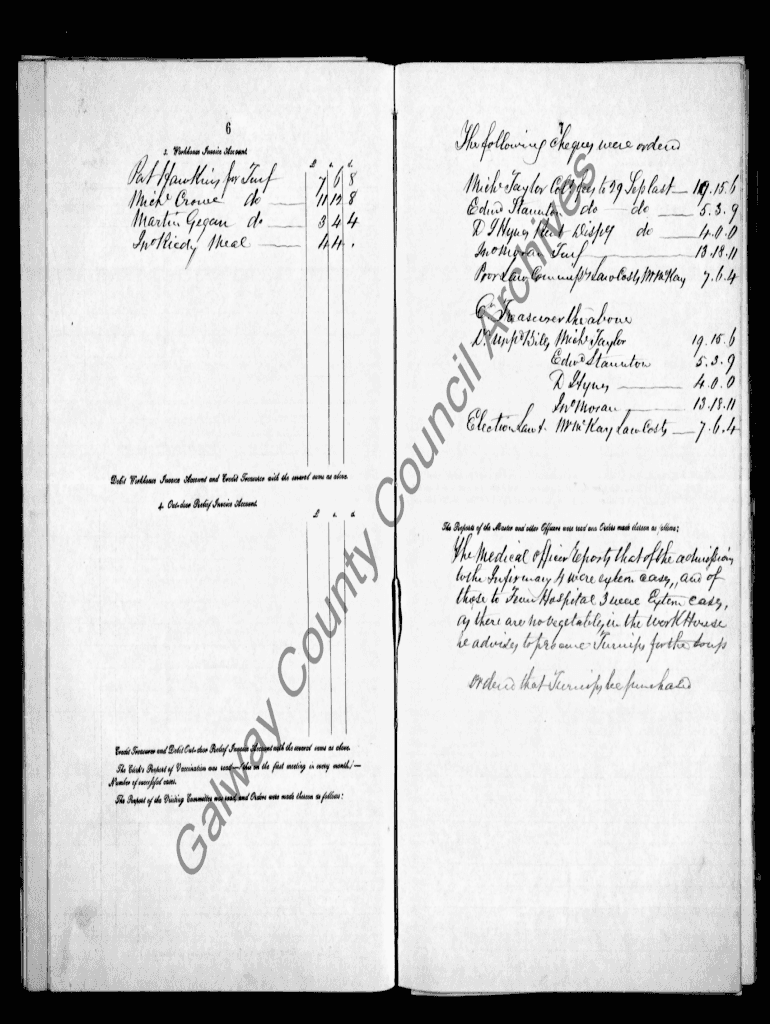 6
3. Workhouse Invoice Account.
£ s. d.
Pat Hawkins for Turf 7 6 8
Mich^l Crowe do 11 12 8
Martin Gegan do 3 4 4
Jn^o Kiedy Meal 4 4 .
Debit Workhouse Invoice Account and Credit Treasurer with the several sums as above.
4. Out-door Relief Invoice Account.
£ s. d.
Credit Treasurer and Debit Out-door Relief Invoice Account with the several sums as above.
The Clerk's Report of Vaccination was read—(this on the first meeting in every month)—
Number of successful cases.
The Report of the Visiting Committee was read, and Orders were made thereon as follows:
7
The following Cheques were ordered
Mich^l Taylor Col^r fees to 29 Sept last 19.15.6
Edw^d Staunton do do 5.3.9
D J Hynes Rent Disp^y do 4.0.0
Jn^o Moran Turf 13.18.11
Poor Law Commiss^rs Law Costs M^r M^cKay 7.6.4
C^r Treasurer the above
D^r Unp^d Bills Mich^l Taylor 19.15.6
Edw^d Staunton 5.3.9
D J Hynes 4.0.0
Jn^o Moran 13.18.11
Election M^r M^cKay Law Costs 7.6.4
The Reports of the Master and other Officers were read and Orders made thereon as follows:
The Medical officer Reports that of the admissions
to the Infirmary 4 were extern cases, and of
those to Fever Hospital 3 were Extern cases,
as there are no vegetables in the Work House
he advises to procure Turnips for the soups
Ordered that Turnips be purchased
Galway County Council Archives